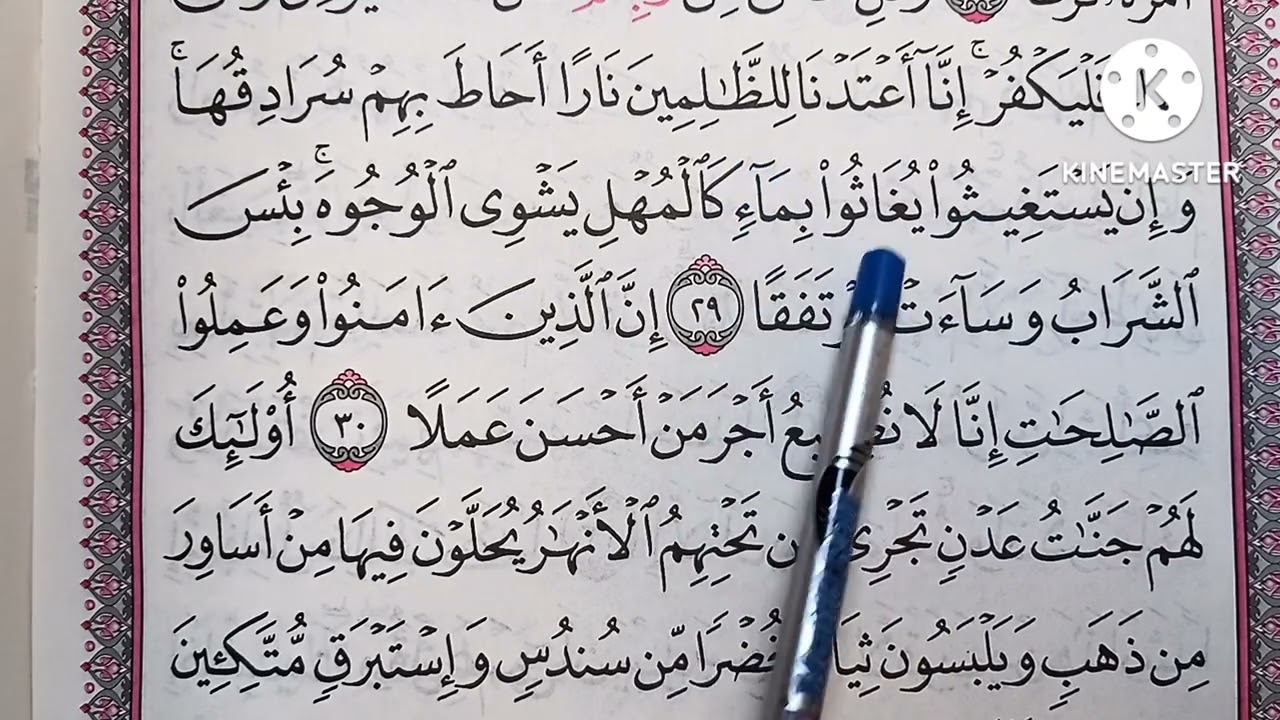 فَلْيَكْفُرْ ۚ إِنَّآ أَعْتَدْنَا لِلظَّٰلِمِينَ نَارًا أَحَاطَ بِهِمْ سُرَادِقُهَا ۚ
KINEMASTER
وَإِن يَسْتَغِيثُوا۟ يُغَاثُوا۟ بِمَآءٍ كَٱلْمُهْلِ يَشْوِى ٱلْوُجُوهَ ۚ بِئْسَ
ٱلشَّرَابُ وَسَآءَتْ تَفَقًا ٢٩ إِنَّ ٱلَّذِينَ ءَامَنُوا۟ وَعَمِلُوا۟
ٱلصَّٰلِحَٰتِ إِنَّا لَا أَجْرَ مَنْ أَحْسَنَ عَمَلًا ٣٠ أُو۟لَٰٓئِكَ
لَهُمْ جَنَّٰتُ عَدْنٍ تَجْرِى تَحْتِهِمُ ٱلْأَنْهَٰرُ يُحَلَّوْنَ فِيهَا مِنْ أَسَاوِرَ
مِن ذَهَبٍ وَيَلْبَسُونَ خُضْرًا مِّن سُندُسٍ وَإِسْتَبْرَقٍ مُّتَّكِـِٔينَ